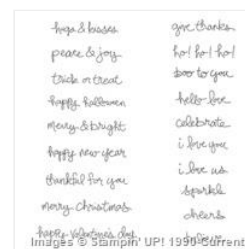 hugs & kisses
peace & joy
trick or treat
happy halloween
merry & bright
happy new year
thankful for you
merry christmas
happy valentine's day
give thanks
ho! ho! ho!
boo to you
hello love
celebrate
i love you
i love us
sparkle
cheers
believe
Images © Stampin' UP! 1990-Current